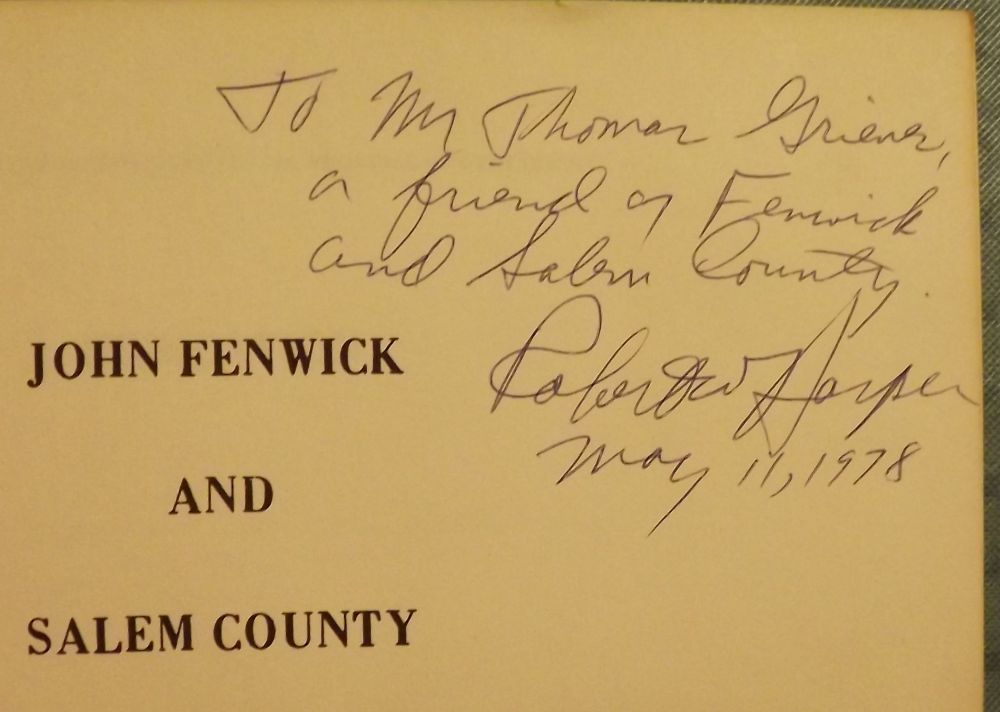 To Mr Thomas Griener,
a friend of Fenwick
and Salem County.
Robert W Harper
May 11, 1978
JOHN FENWICK
AND
SALEM COUNTY